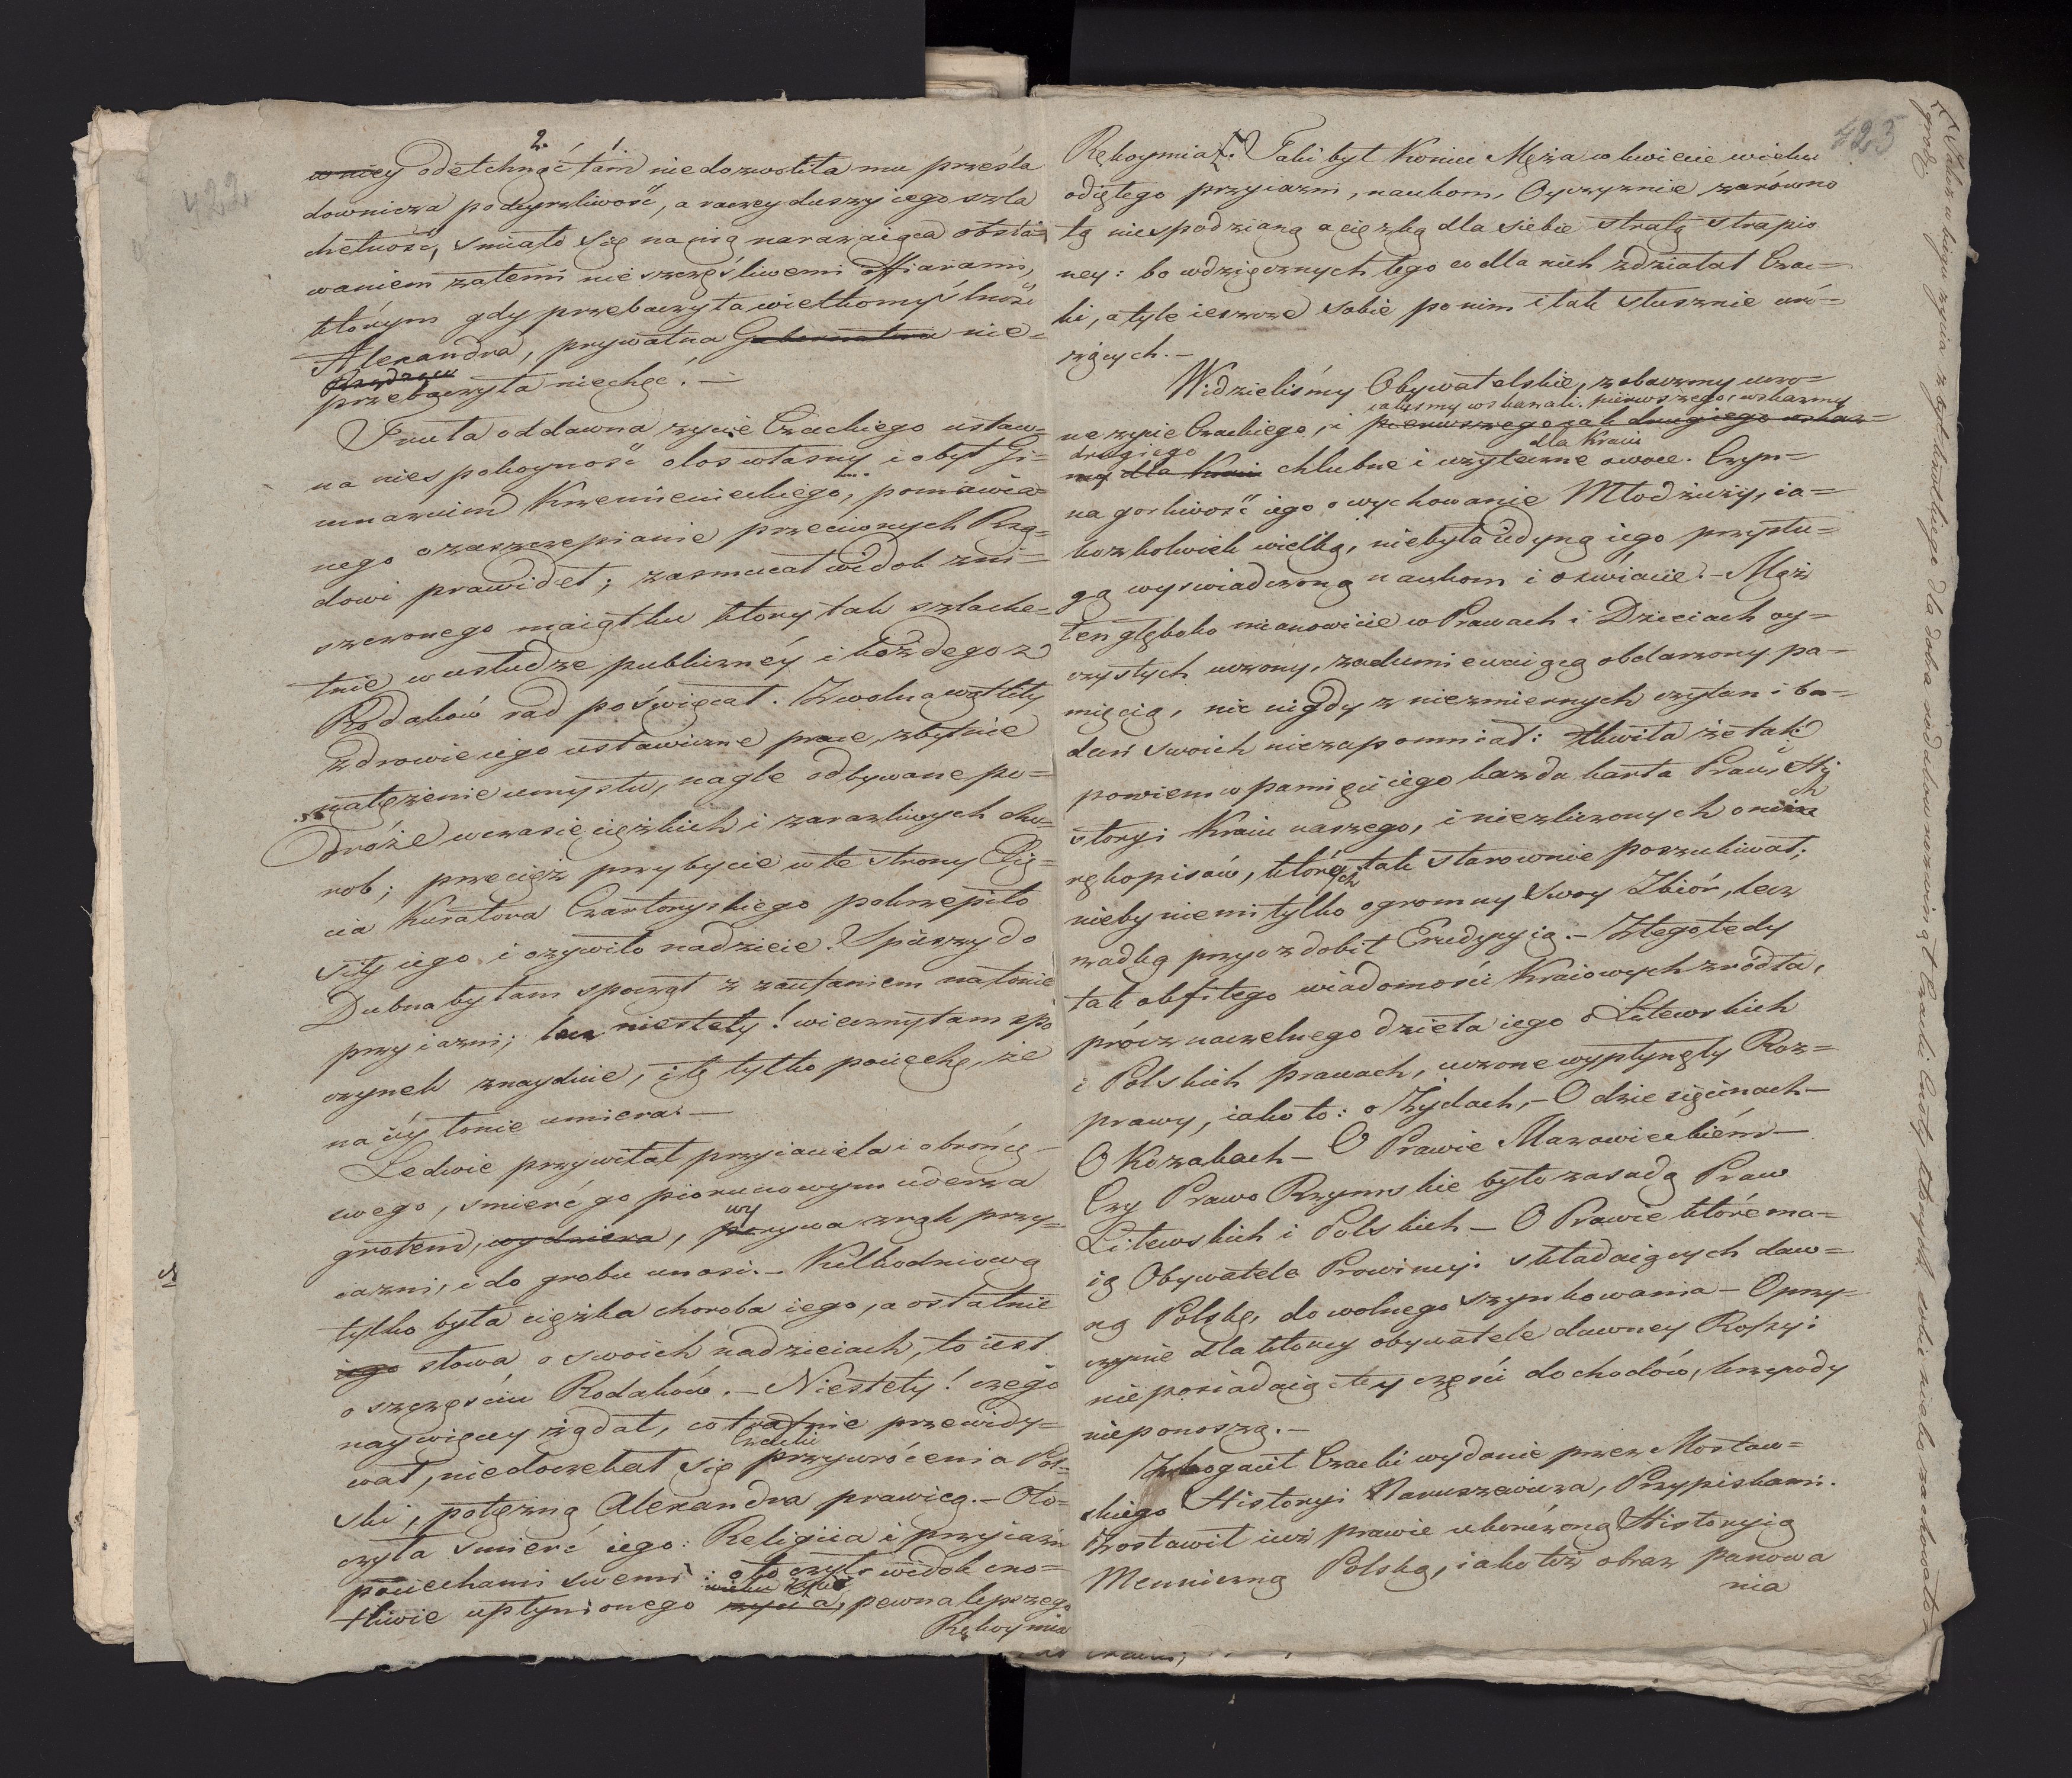 422
2. 1.
w niey odetchnąć tam niedozwoliła mu prześla
downicza podeyrzliwość, a raczey duszy iego szla
chetność, smiało się na nią narażaiąca obsta-
waniem zatemi nieszczęśliwemi offiarami,
którym gdy przebaczyła wielkomyślność
Alexandra, prywatna Gubernatora nie-
Rządzcy
przebaczyła niechęć. —
Truła oddawna życie Czackiego ustaw-
na niespokoyność o los własny i o byt Gi-
mnazium Krzemienieckiego, pomawia-
nego o zaszczepianie przeciwnych Rzą-
dowi prawideł; zasmucał widok zni-
szczonego maiątku który tak szlache-
tnie w usłudze publiczney i każdego z
Rodaków rad poświęcał. Zwolna wątliły
zdrowie iego ustawiczne prace, zbytnie
natężenie umysłu, nagle odbywane po-
dróże w czasie ciężkich i zaraźliwych cho-
rob; przecież przybycie w te strony Xię-
cia Kuratora Czartoryskiego pokrzepiło
siły iego i ożywiło nadzieie. Spieszy do
Dubna by tam spoczął z zaufaniem na łonie
przyiazni; lecz niestety! wieczny tam spo
czynek znayduie, i tę tylko pociechę, że
na iéy łonie umiera. —
Ledwie przywitał przyiaciela i obrońcę
swego, smierć go piorunowym uderza
grotem, wydziera, porywa z rąk przy-
wy
iazni, i do grobu unosi. — Kilkodniową
tylko była ciężka choroba iego, a ostatnie
iego słowa o swoich nadzieiach, to iest
o szczęściu Rodaków. — Niestety! czego
naywięcey żądał, co trafnie przewidy-
wał, niedoczekał się Czacki przywrócenia Pol-
ski, potężną Alexandra prawicą. — Oto-
czyła smierć iego: Religiia i przyiaźń
pociechami swemi: otoczył widok cno-
tliwie upłynionego życia, pewna lepszego
wieku
Rękoymia
423
Rękoymia. Taki był koniec Męża w kwiecie wieku
odiętego przyiazni, naukom, Oyczyznie zarówno
tą niespodzianą a ciężką dla siebie stratą strapio
ney: bo wdzięcznych tego co dla nich zdziałał Czac-
ki, a tyle ieszcze sobie po nim i tak słusznie wró-
żących. —
Widzieliśmy Obywatelskie, zobaczmy uczo-
ne życie Czackiego, i pierwszego iak drugiego wskaz-
iakeśmy wskazali pierwszego, wskażmy
drugiego
my dla Kraiu chlubne i użyteczne owoce. Czyn-
dla Kraiu
na gorliwość iego o wychowanie Młodzieży, ia-
kożkolwiek wielką, niebyła iedyną iego przysłu-
gą wyswiadczoną naukom i oswiacie. — Mąż
ten głęboko mianowicie w Prawach i Dzieiach oy-
czystych uczony, zadumiewaiącą obdarzony pa-
mięcią, nic nigdy z niezmiernych czytan i ba-
dań swoich niezapomniał: tkwiła że tak
powiem w pamięci iego każda karta Praw, i Hi-
storyi Kraiu naszego, i niezliczonych onych
rękopisów, których tak starownie poszukiwał;
nieby niemi tylko ogromny swoy Zbiór, lecz
rzadką przyozdobił Erudycyią. — Z tego tedy
tak obfitego wiadomości Kraiowych zródła,
prócz naczelnego dzieła iego o Litewskich
i Polskich prawach, uczone wypłynęły Roz-
prawy, iako to: o Żydach, — O dziesięcinach —
O Kozakach — O Prawie Mazowieckiém —
Czy Prawo Rzymskie było zasadą Praw
Litewskich i Polskich — O Prawie które ma-
ią Obywatele Prowincyi składaiących daw-
ną Polskę, do wolnego szynkowania — O przy-
czynie dla którey obywatele dawney Rossyi
nieposiadaią tey części dochodów, krzywdy
nieponoszą. —
Zbogacił Czacki wydanie przez Mostow-
skiego Historyi Naruszewicza, Przypiskami.
Zostawił iuż prawie ukończoną Historyią
Menniczną Polską, iako też obraz panowa
nia
w biegu życia z tylu dla dobra rodaków Czacki
sobie nieba zachowało